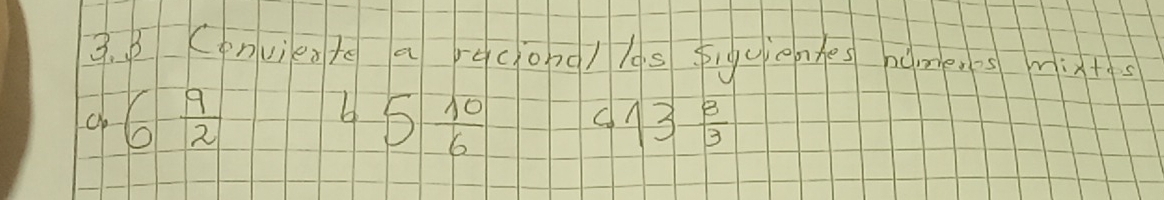 3.3 Convierte a racional los siguientes números mixtos
a 6 9/2 b 5 10/6 c 13 8/3